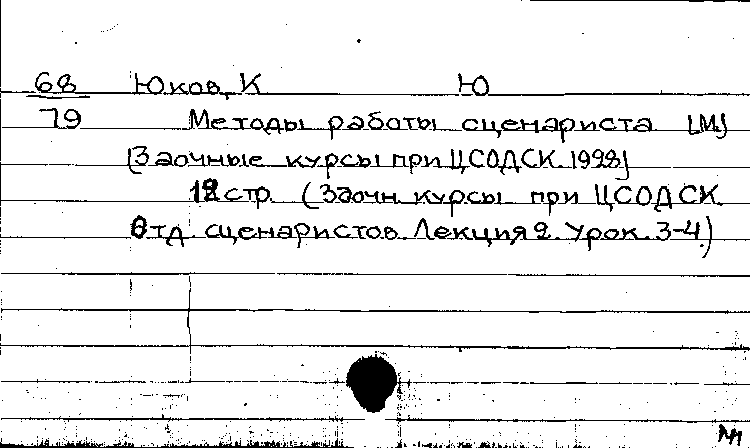 68 Юков, К Ю
79 Методы работы сценариста [М]
[Заочные курсы при ЦСОДСК. 1928]
12 стр. (Заочн. курсы при ЦСОДСК.
Отд. сценаристов. Лекция 2. Урок. 3-4.)